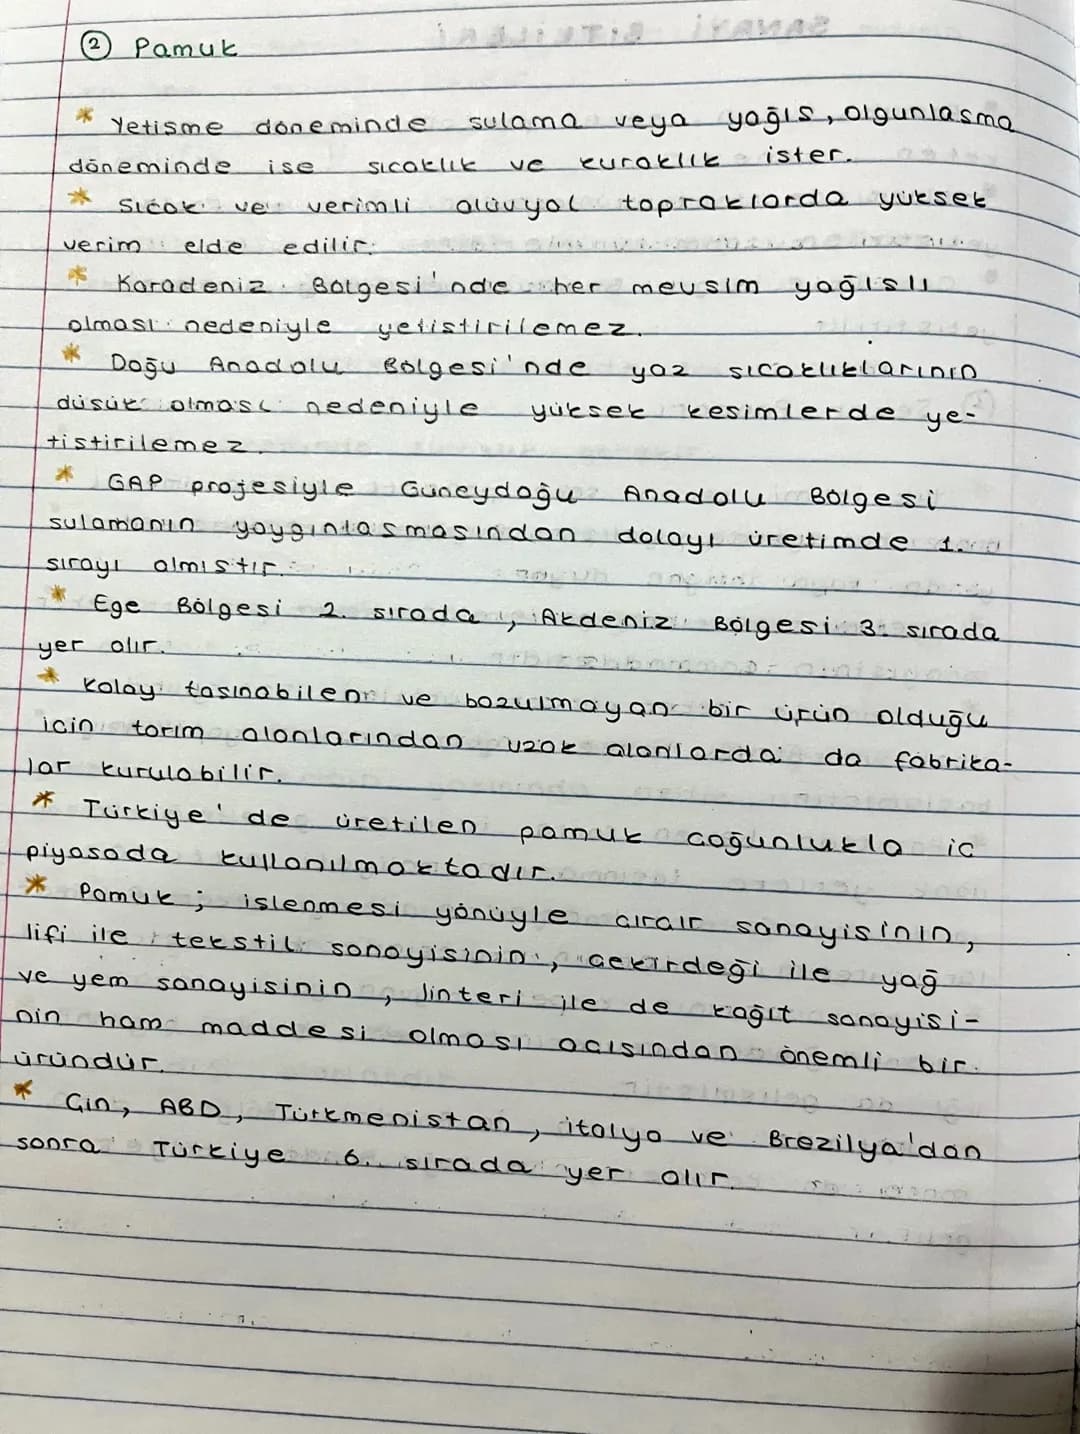 ② Pamuk
* Yetisme döneminde sulama veya yağıs, olgunlasma
döneminde ise sıcaklık ve kuraklık ister.
* Sıcak ve verimli alüvyal topraklarda yüksek
verim elde edilir.
* Karadeniz Bölgesi'nde her mevsim yağıslı
olması nedeniyle yetistirilemez.
* Doğu Anadolu Bölgesi'nde yaz sıcaklıklarının
düsük olması nedeniyle yüksek kesimlerde ye-
tistirilemez.
* GAP projesiyle Güneydoğu Anadolu Bölgesi
sulamanın yaygınlasmasından dolayı üretimde 1.
sırayı almıstır.
* Ege Bölgesi 2. sırada, Akdeniz Bölgesi 3. sırada
yer alır.
* Kolay tasınabilen ve bozulmayan bir ürün olduğu
icin tarım alanlarından uzak alanlarda da fabrika-
lar kurulabilir.
* Türkiye'de üretilen pamuk coğunlukla ic
piyasada kullanılmaktadır.
* Pamuk; islenmesi yönüyle cırcır sanayisinin,
lifi ile tekstil sanayisinin, cekirdeği ile yağ
ve yem sanayisinin, linteri ile de kağıt sanayisi-
nin ham maddesi olması acısından önemli bir
üründür.
* Cin, ABD, Türkmenistan, italya ve Brezilya'dan
sonra Türkiye 6. sırada yer alır.